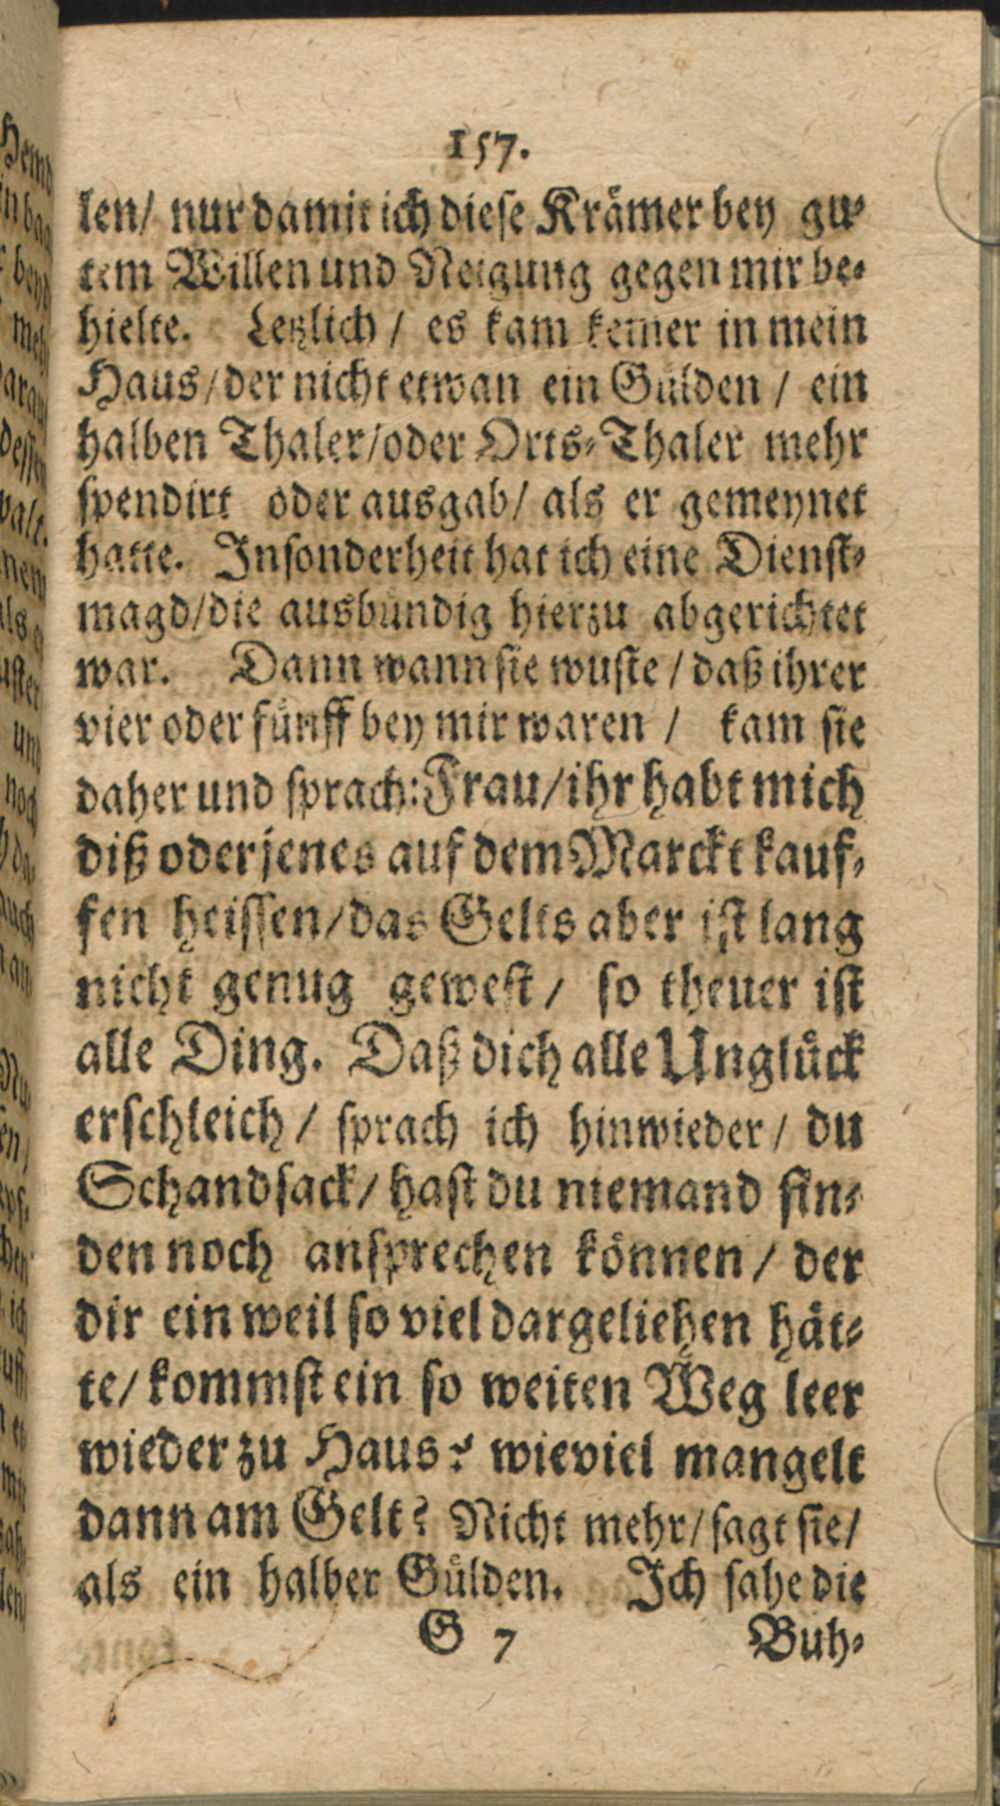 157.
len/ nur damit ich diese Krämer bey gu-
tem Willen und Neigung gegen mir be-
hielte. Letzlich / es kam keiner in mein
Haus/ der nicht etwan ein Gülden / ein
halben Thaler/oder Orts-Thaler mehr
spendirt oder ausgab/ als er gemeynet
hatte. Insonderheit hat ich eine Dienst-
magd/die ausbündig hierzu abgerichtet
war. Dann wann sie wuste / daß ihrer
vier oder fünff bey mir waren / kam sie
daher und sprach: Frau/ihr habt mich
diß oder jenes auf dem Marckt kauf-
fen heissen/das Gelts aber ist lang
nicht genug gewest / so theuer ist
alle Ding. Daß dich alle Unglück
erschleich / sprach ich hinwieder / du
Schandsack/ hast du niemand fin-
den noch ansprechen können / der
dir ein weil so viel dargeliehen hät-
te/ kommst ein so weiten Weg leer
wieder zu Haus? wieviel mangelt
dann am Gelt? Nicht mehr/ sagt sie/
als ein halber Gülden. Ich sahe die
G 7 Buh-